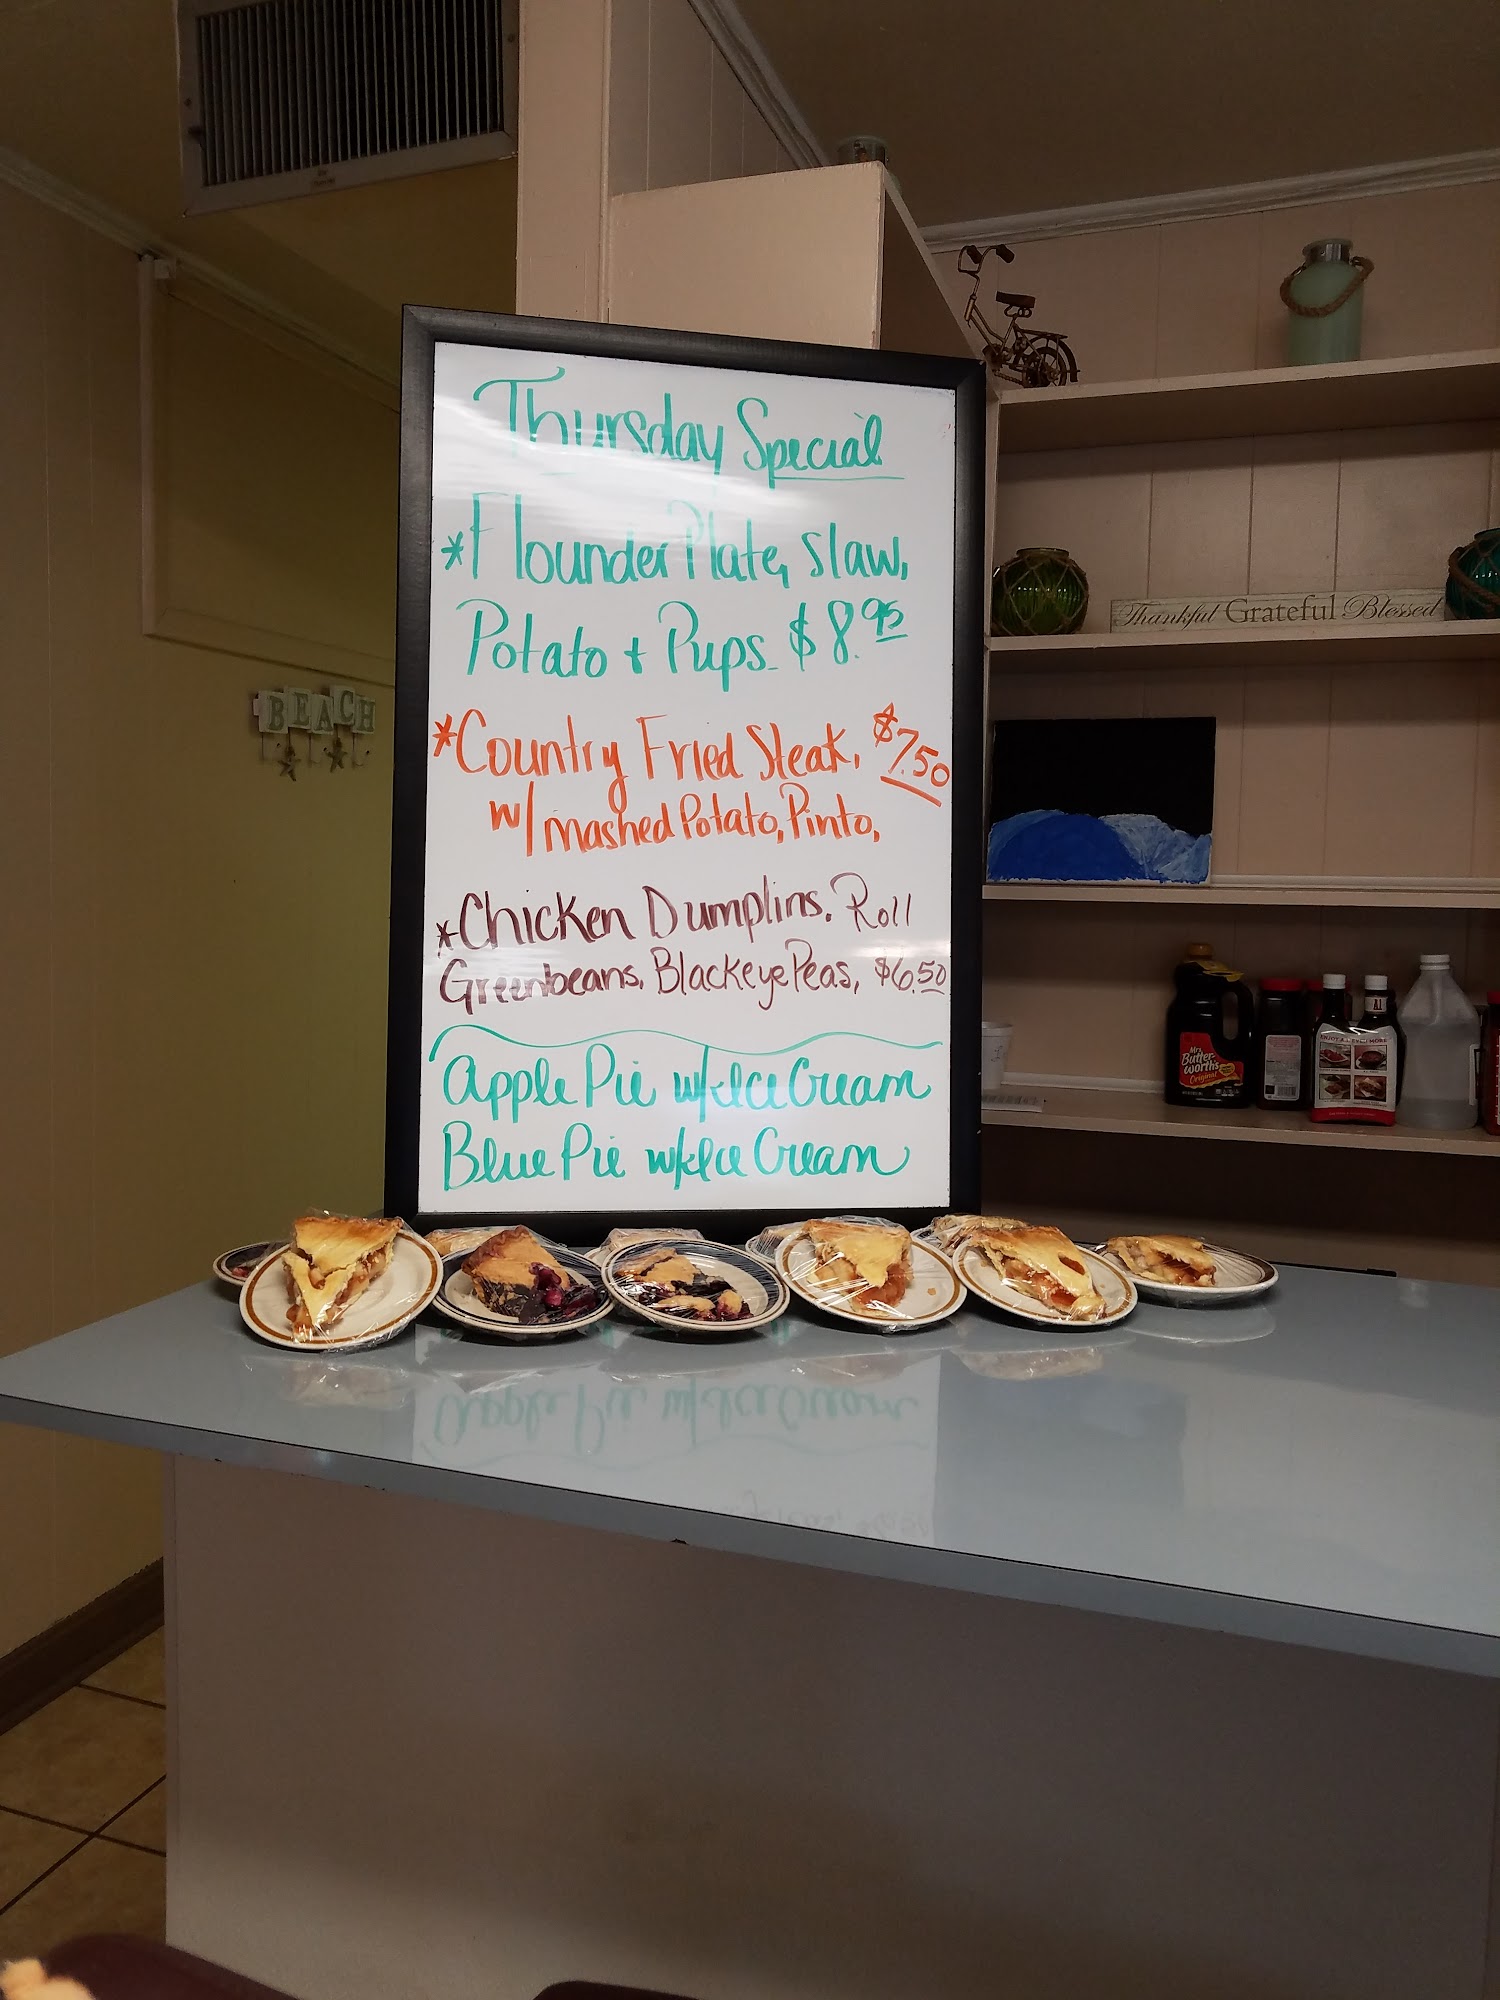 Thursday Special
*Flounder Plate, Slaw,
Potato + Pups. $8.95
*Country Fried Steak, $7.50
w/ Mashed Potato, Pinto,
*Chicken Dumplins. Roll
Greenbeans. Blackeye Peas, $6.50
Apple Pie w/Ice Cream
Blue Pie w/Ice Cream
BEACH
Thankful Grateful Blessed
Mrs.
Butter-
worth's
Original
A1
ENJOY A.1. EVEN MORE